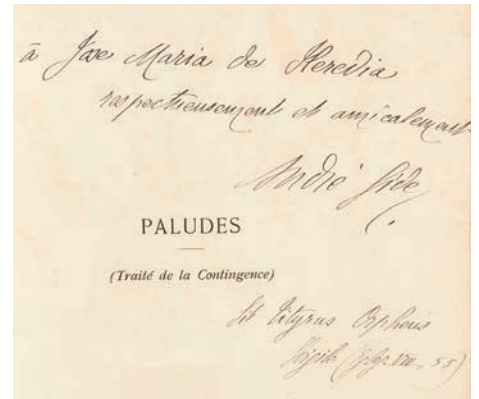 à Jose Maria de Heredia
respectueusement et amicalement
André Gide
PALUDES
(Traité de la Contingence)
Sit Tityrus Orpheus
Virgile (Egl. VIII, 55)